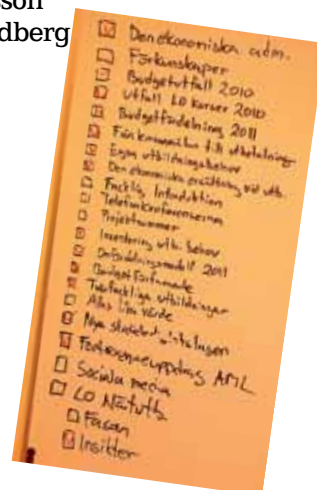 sson
dberg
Den ekonomiska adm.
Förkunskaper
Budgetutfall 2010
Utfall LO kurser 2010
Budgetfördelning 2011
Från kommunikén till utbetalning
Egna utbildningsbehov
Den ekonomiska ersättning vid utb.
Facklig Introduktion
Telefonkonferenserna
Projektsummor
Inventering utb. behov
2011
Budget
Tvärfackliga utbildningar
Allas lika värde
Nya
Företrädareuppdrag AML
Sociala media
LO Nätutb
Fasan
Insikter